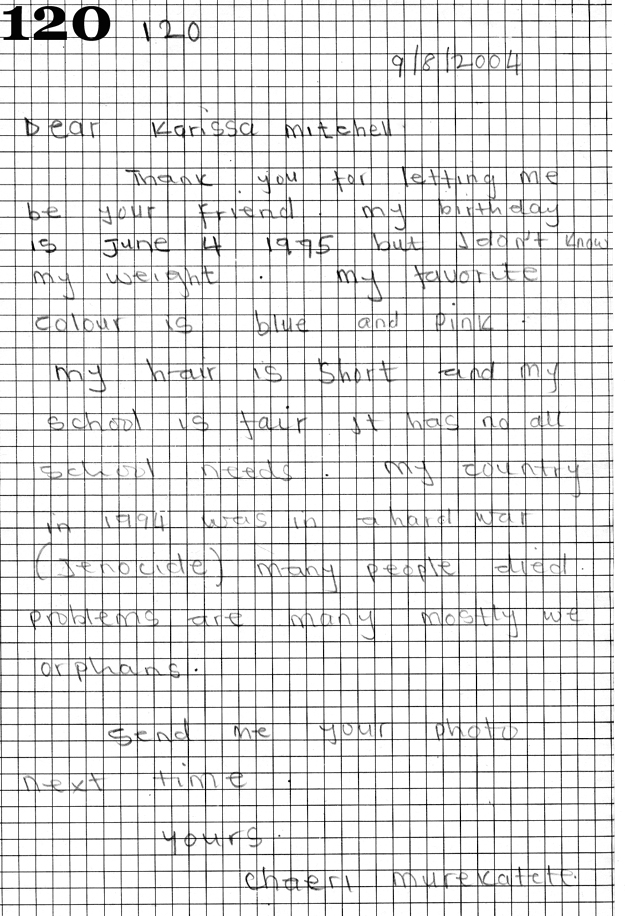 120 120
9/8/2004
Dear Karissa mitchell
Thank you for letting me
be your friend. my birthday
is June 4 1995 but I don't know
my weight. my favorite
colour is blue and pink.
my hair is short and my
school is fair It has no all
school needs. my country
in 1994 was in a hard war
(Jenocide) many people died.
problems are many mostly we
orphans.
send me your photo
next time.
yours.
chaeri murekatete.